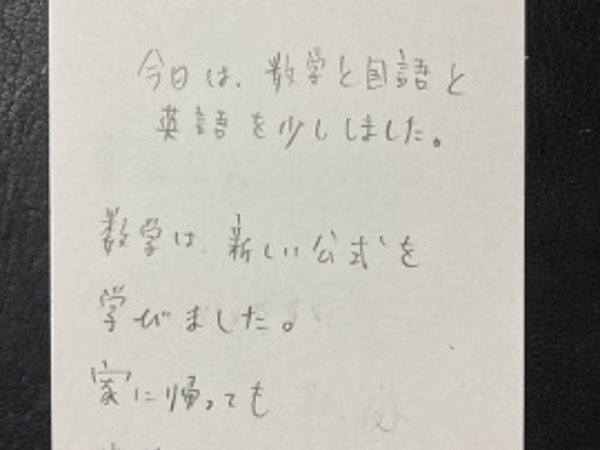 今日は、数学と国語と
英語を少ししました。
数学は、新しい公式を
学びました。
家に帰っても